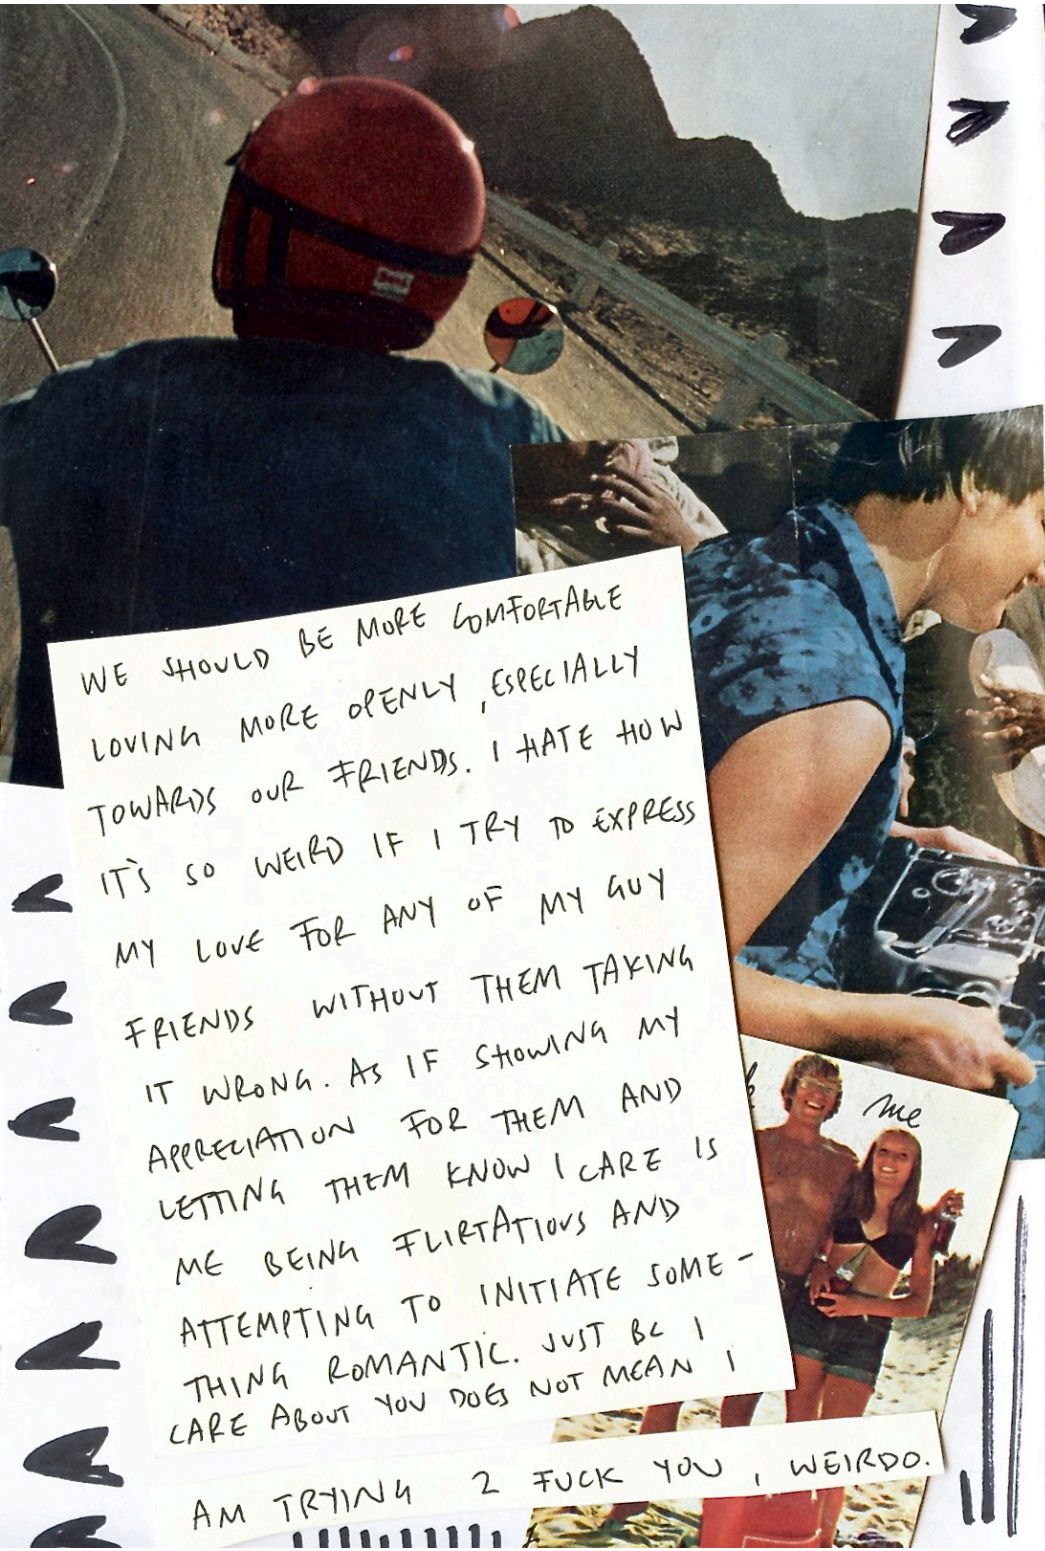 WE SHOULD BE MORE COMFORTABLE
LOVING MORE OPENLY, ESPECIALLY
TOWARDS OUR FRIENDS. I HATE HOW
IT'S SO WEIRD IF I TRY TO EXPRESS
MY LOVE FOR ANY OF MY GUY
FRIENDS WITHOUT THEM TAKING
IT WRONG. AS IF SHOWING MY
APPRECIATION FOR THEM AND
LETTING THEM KNOW I CARE IS
ME BEING FLIRTATIOUS AND
ATTEMPTING TO INITIATE SOME-
THING ROMANTIC. JUST BC I
CARE ABOUT YOU DOES NOT MEAN I
AM TRYING 2 FUCK YOU, WEIRDO.
me